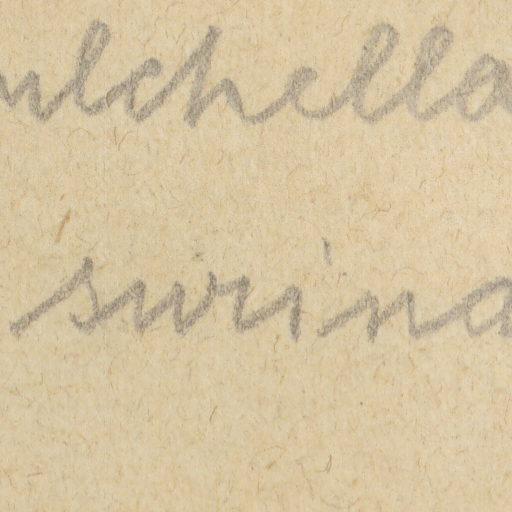 ulchella
swrina